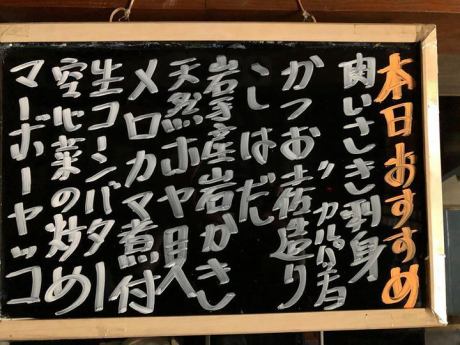 本日おすすめ
肉いさき刺身
〃 カルパッチョ
かつお土佐造り
こはだ
岩手産岩かき
天然ホヤ貝
メロカマ煮付
生コーンバター
空心菜の炒め
マーボーヤッコ